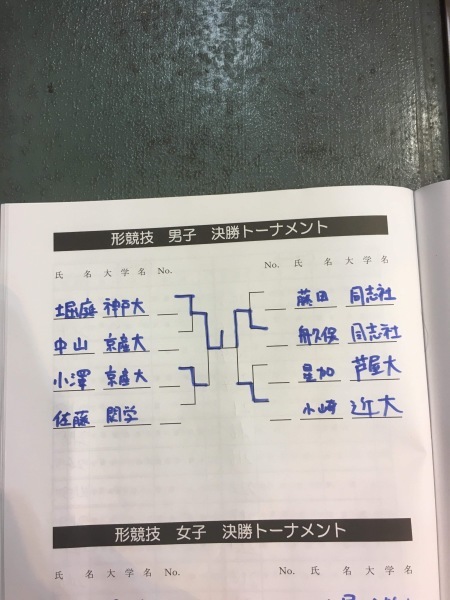 形競技 男子 決勝トーナメント
氏 名 大 学 名 No. No. 氏 名 大 学 名
堀庭 神戸大 藤田 同志社
中山 京産大 舟久保 同志社
小澤 京産大 星加 芦屋大
佐藤 関学 小崎 近大
形競技 女子 決勝トーナメント
氏 名 大 学 名 No. No. 氏 名 大 学 名